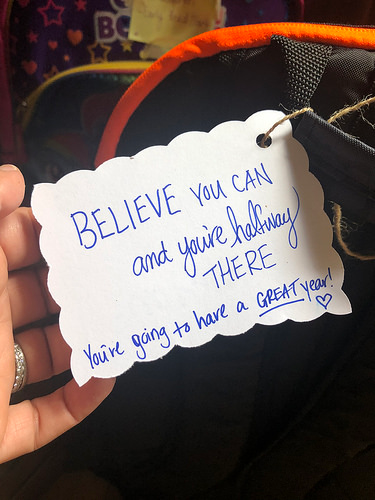 BO
BELIEVE YOU CAN
and you're halfway
THERE
You're going to have a GREAT year! ♡